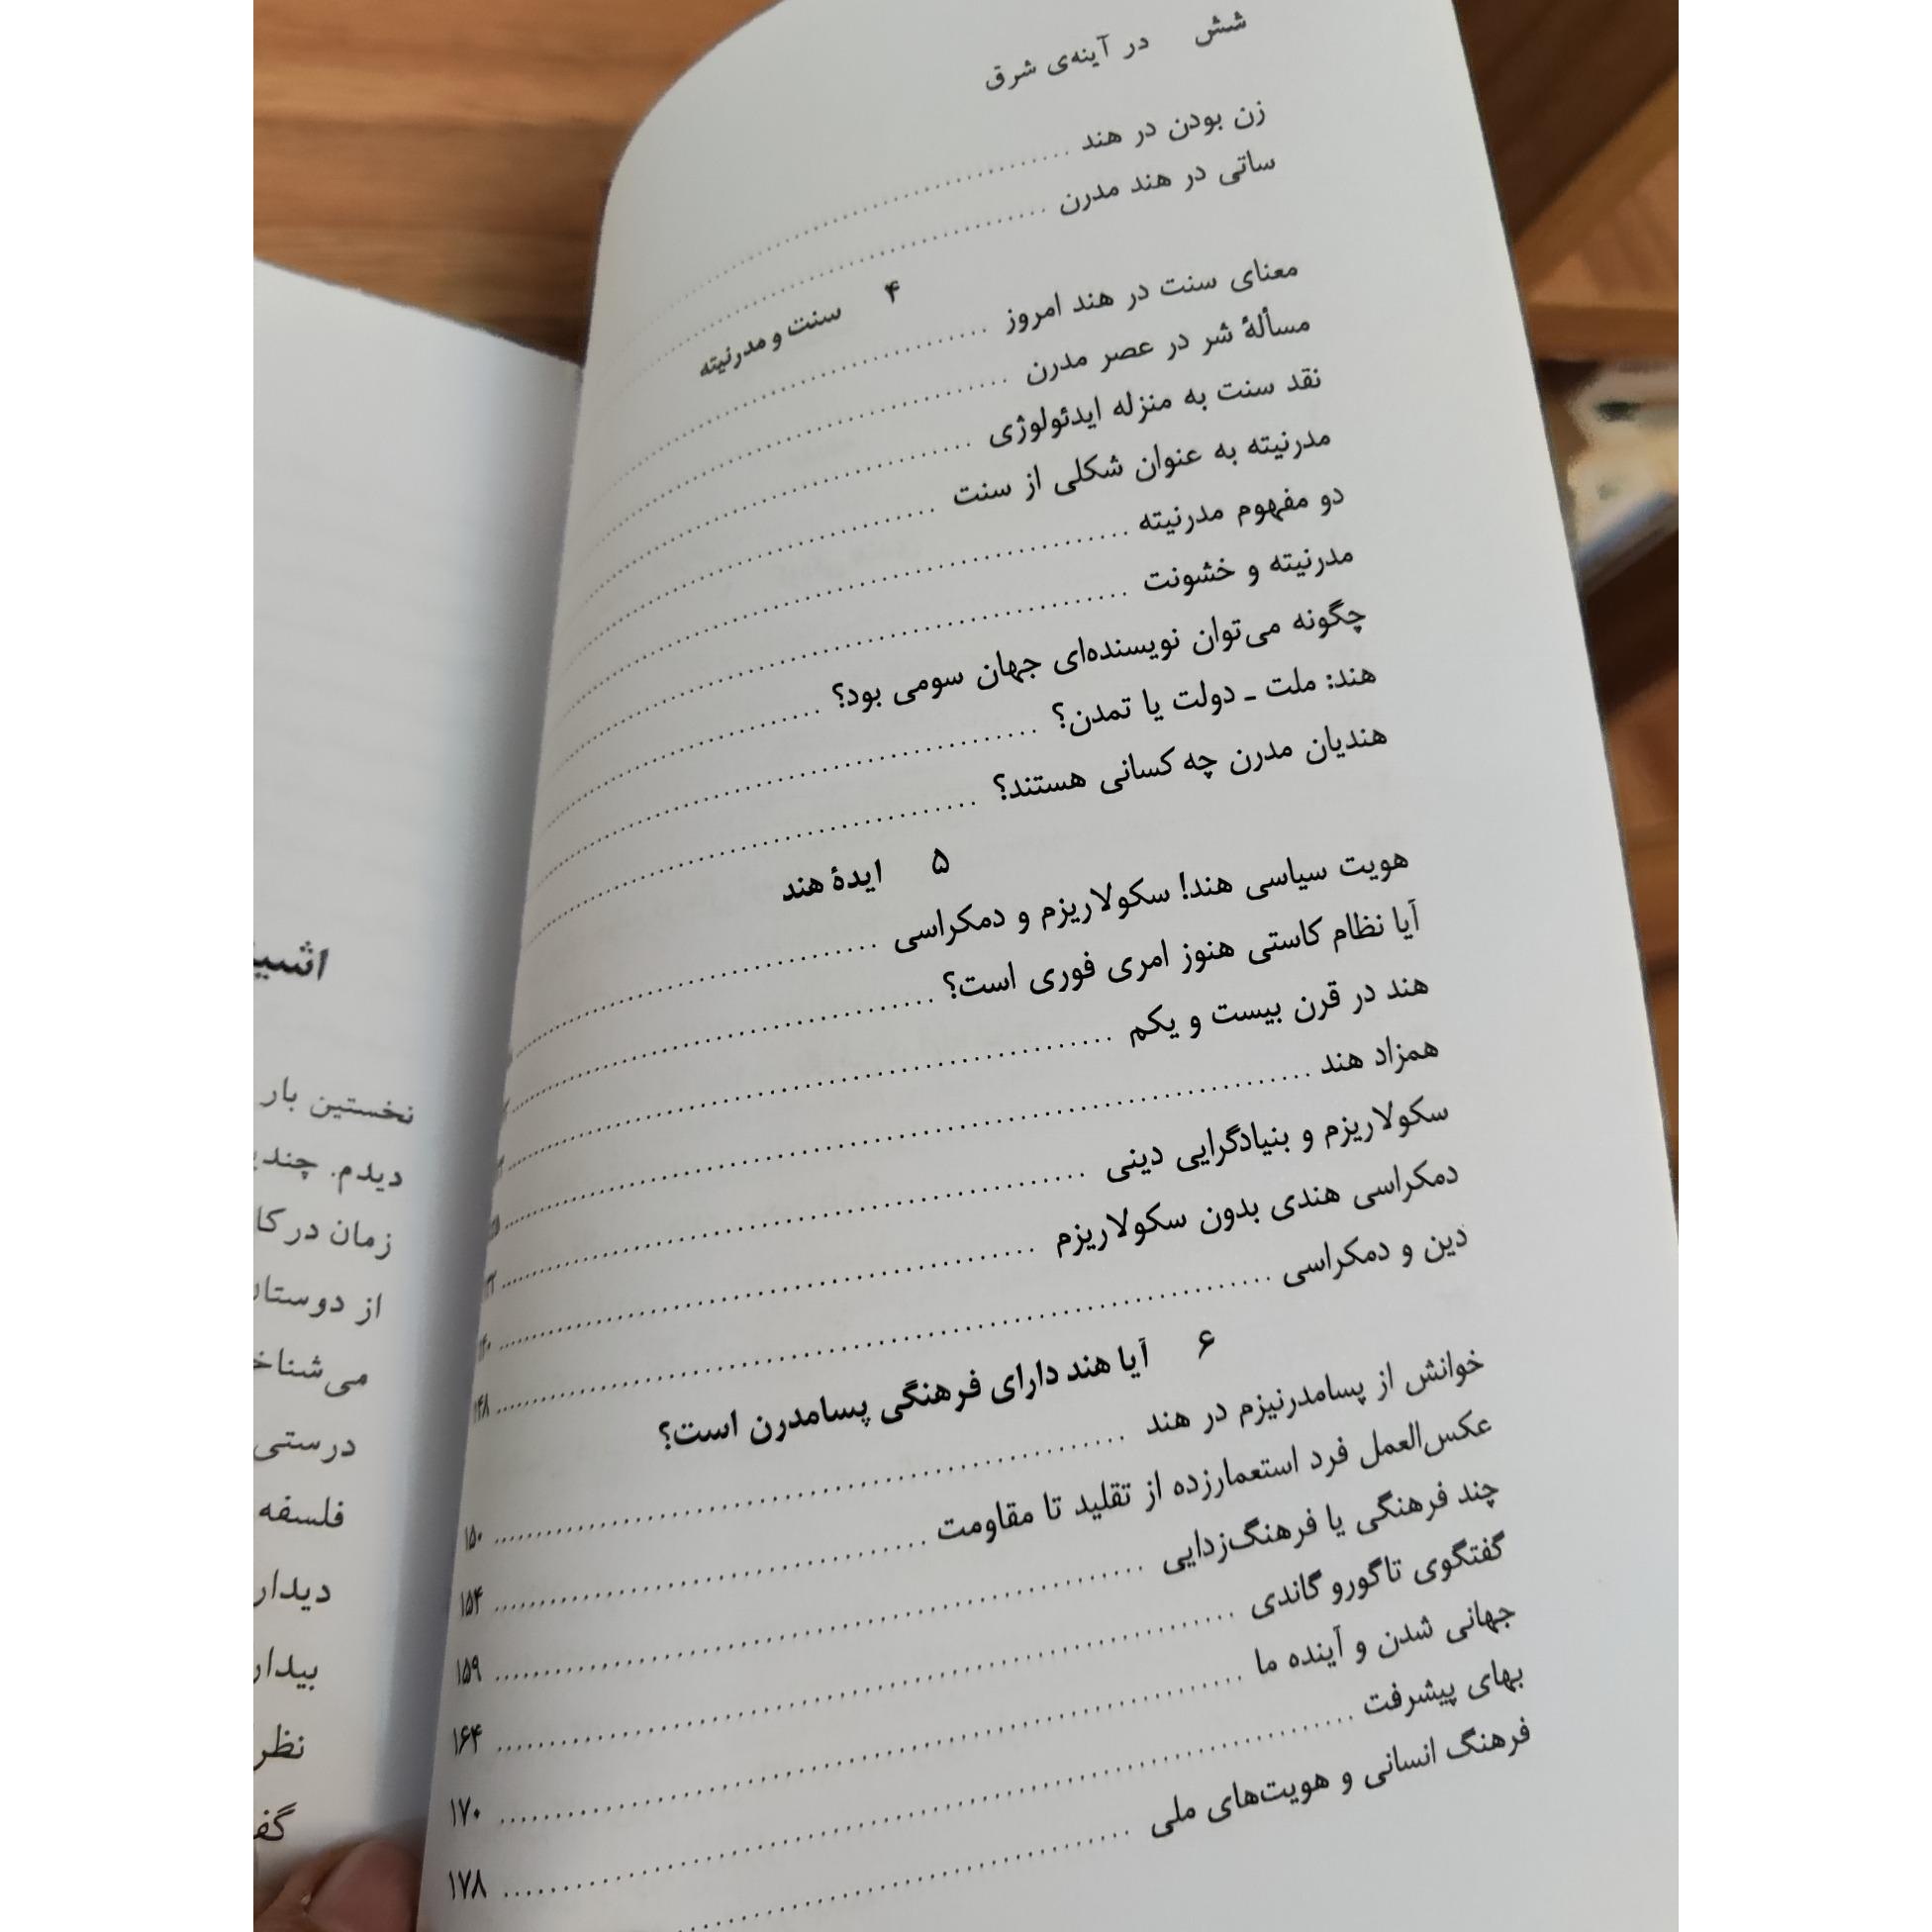 شش در آینه‌ی شرق
زن بودن در هند
ساتی در هند مدرن
۴ سنت و مدرنیته
معنای سنت در هند امروز
مسألهٔ شر در عصر مدرن
نقد سنت به منزله ایدئولوژی
مدرنیته به عنوان شکلی از سنت
دو مفهوم مدرنیته
مدرنیته و خشونت
چگونه می‌توان نویسنده‌ای جهان سومی بود؟
هند: ملت ـ دولت یا تمدن؟
هندیان مدرن چه کسانی هستند؟
۵ ایدهٔ هند
هویت سیاسی هند! سکولاریزم و دمکراسی
آیا نظام کاستی هنوز امری فوری است؟
هند در قرن بیست و یکم
همزاد هند
سکولاریزم و بنیادگرایی دینی
دمکراسی هندی بدون سکولاریزم
دین و دمکراسی ۱۴۸
۶ آیا هند دارای فرهنگی پسامدرن است؟
خوانش از پسامدرنیزم در هند ۱۵۰
عکس‌العمل فرد استعمارزده از تقلید تا مقاومت ۱۵۴
چند فرهنگی یا فرهنگ‌زدایی ۱۵۹
گفتگوی تاگورو گاندی ۱۶۴
جهانی شدن و آینده ما ۱۷۰
بهای پیشرفت ۱۷۸
فرهنگ انسانی و هویت‌های ملی
نخستین بار
دیدم.
زمان در
از
درستی
فلسفه
دیدار
نظر